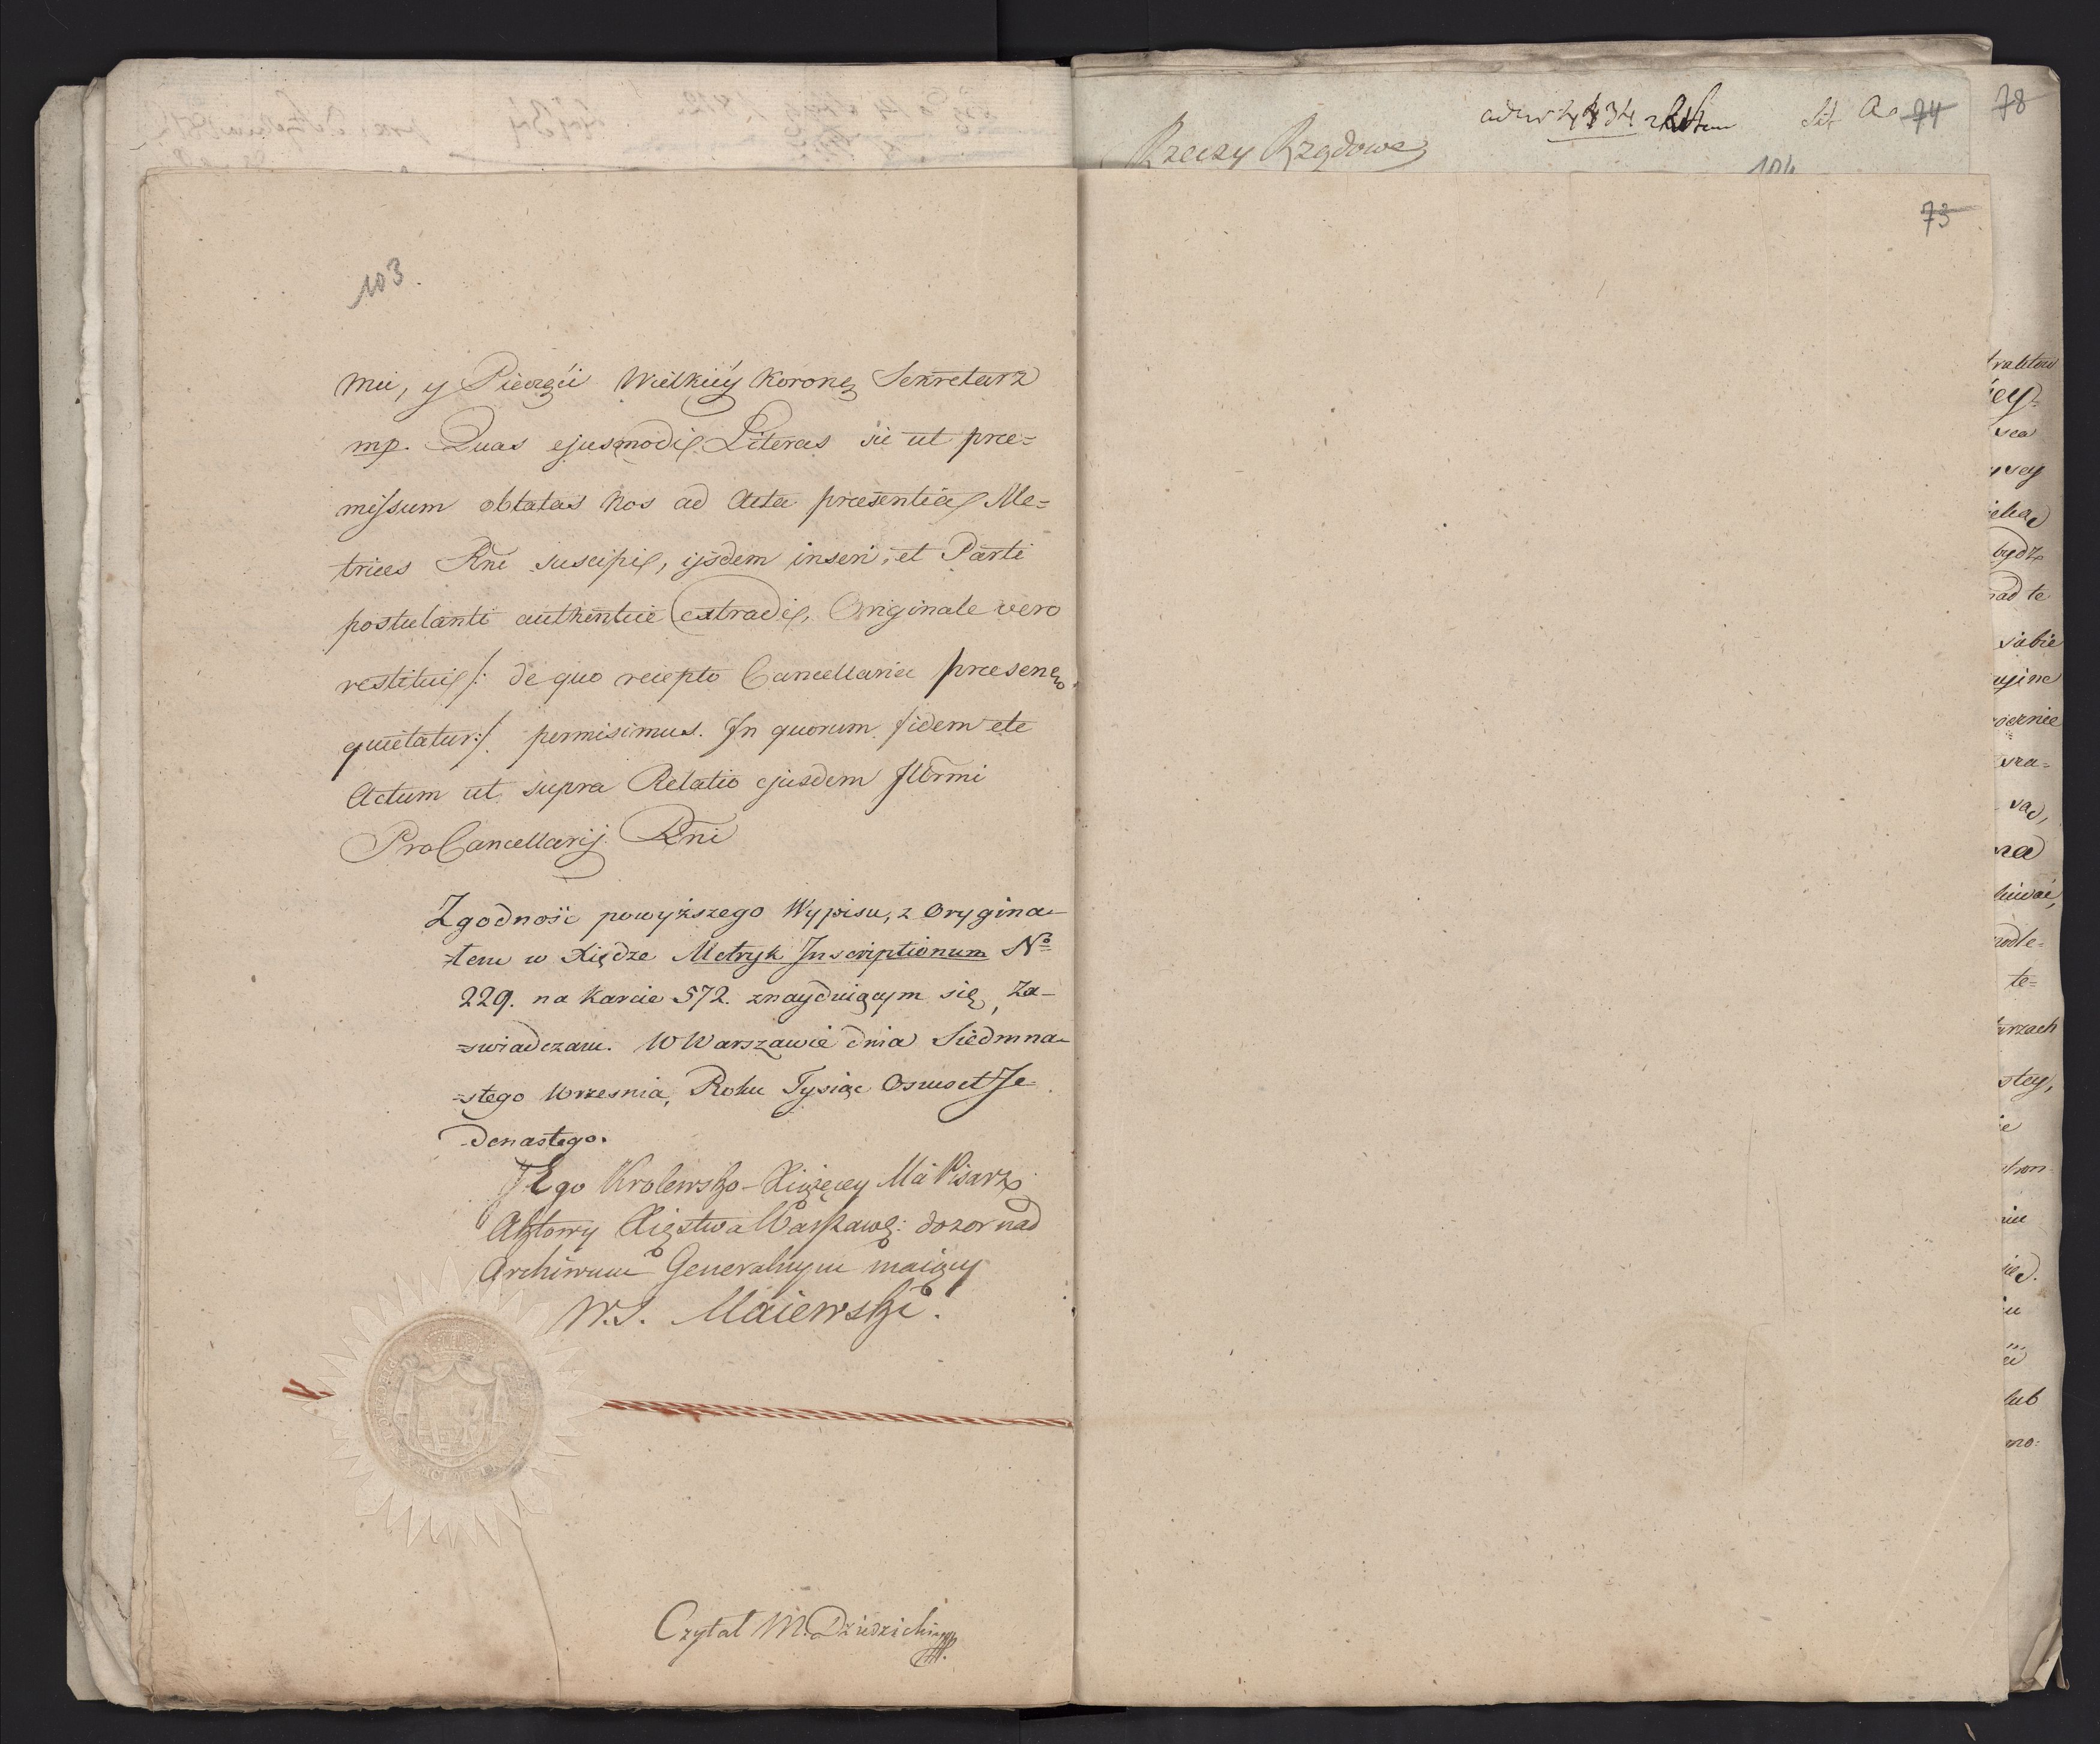 103.
mci, y Pieczęci Wielkiéy Koronę Sekretarz
mp. Quas ejusmodi Literas sic ut prae=
missum oblatas Nos ad Acta praesentia Me=
trices Rni suscipi, ijsdem inseri, et Parti
postulanti authentice extradi, Originale vero
restitui /: de quo recepto Cancellaria praesens
quietatur :/ permisimus. In quorum fidem etc
Actum ut supra Relatio ejusdem Illrmi
ProCancellarij Rni
Zgodność powyższego Wypisu, z Orygina-
łem w Xiędze Metryk Inscriptionum No
229. na Karcie 572. znayduiącym się, Za-
=swiadczam. W Warszawie dnia Siedmna-
=stego Wrzesnia, Roku Tysiąc Osmset Je
-denastego.
JEgo Krolewsko-Xiążęcey Mci Pisarz
Aktowy Xięstwa Warszaws: dozor nad
Archiwum Generalnym maiący
W.S. Maiewski.
Czytał M. Dziedzicki
Rzeczy Rządowe
Lit Aa 74
78
104
73
bydz
nad te
sobie
wiernie
=
na
podle=
te=
stey,
ie
lub